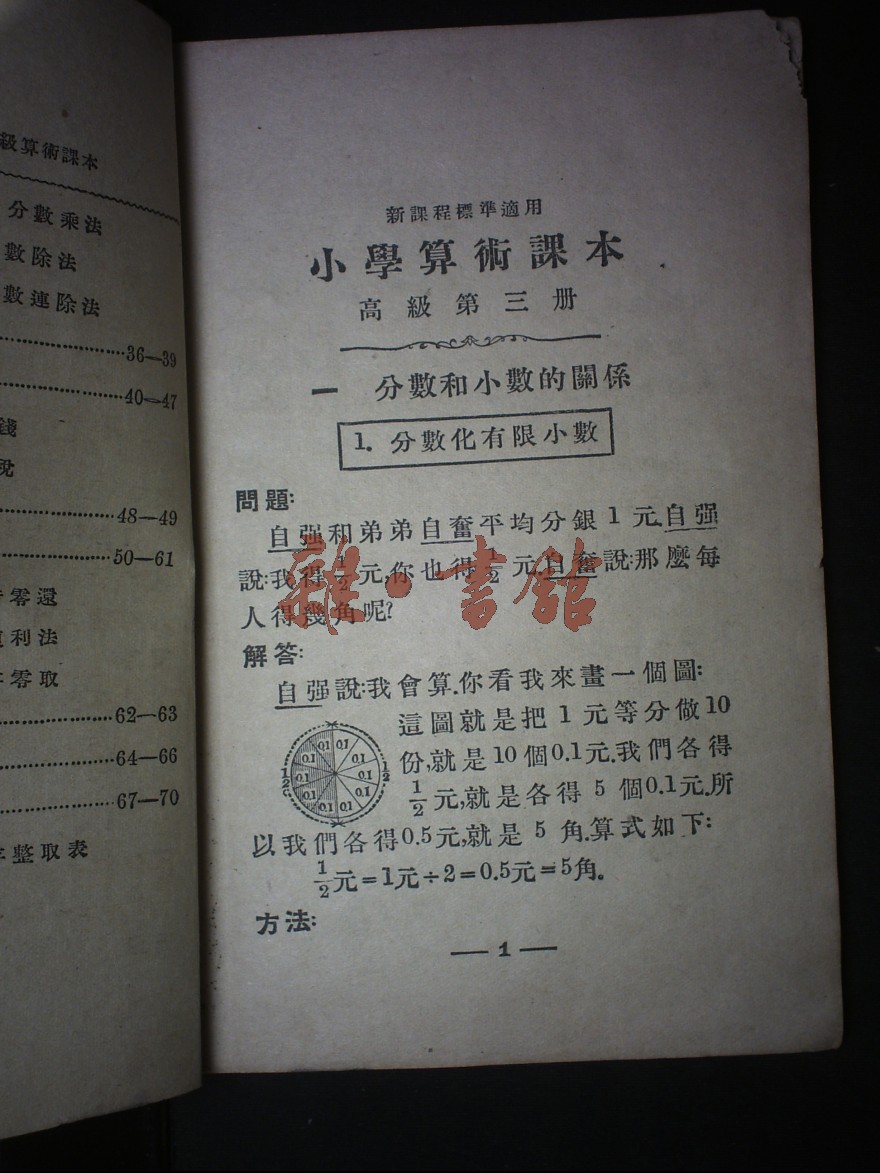 級算術課本
分數乘法
數除法
數連除法
36—39
40—47
錢
48—49
50—61
零還
利法
零取
62—63
64—66
67—70
整取表
新課程標準適用
小學算術課本
高級第三册
一 分數和小數的關係
1. 分數化有限小數
問題:
自强和弟弟自奮平均分銀1元.自强
說:我得1/2元,你也得1/2元.自奮說:那麼每
人得幾角呢?
雜·書館
解答:
自强說:我會算.你看我來畫一個圖:
這圖就是把1元等分做10
份,就是10個0.1元.我們各得
1/2元,就是各得5個0.1元.所
以我們各得0.5元,就是5角.算式如下:
0.1 0.1
0.1 0.1
0.1 0.1
0.1 0.1
0.1 0.1
1/2
1/2
1/2元=1元÷2=0.5元=5角。
方法:
— 1 —